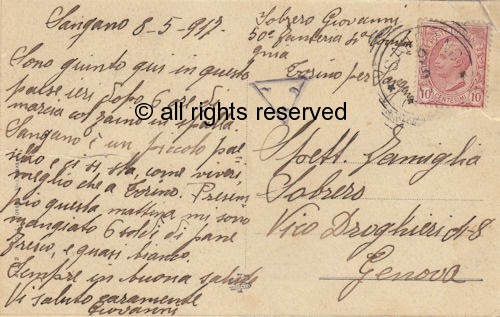 Sangano 8-5-917
Sono giunto qui in questo
paese ieri dopo 6 ore di
marcia col zaino in spalla.
Sangano è un piccolo pae-
sello e ci si sta, come viveri
meglio che a Torino. Presem
pio questa mattina mi sono
mangiato 6 soldi di pane
fresco, e quasi bianco.
Sempre in buona salute
Vi saluto caramente
Giovanni
Sobrero Giovanni
50° Fanteria 4a Compa
gnia
Torino per
10 CENTESIMI 10
© all rights reserved
Spett. Famiglia
Sobrero
Vico Droghieri N-8
Genova